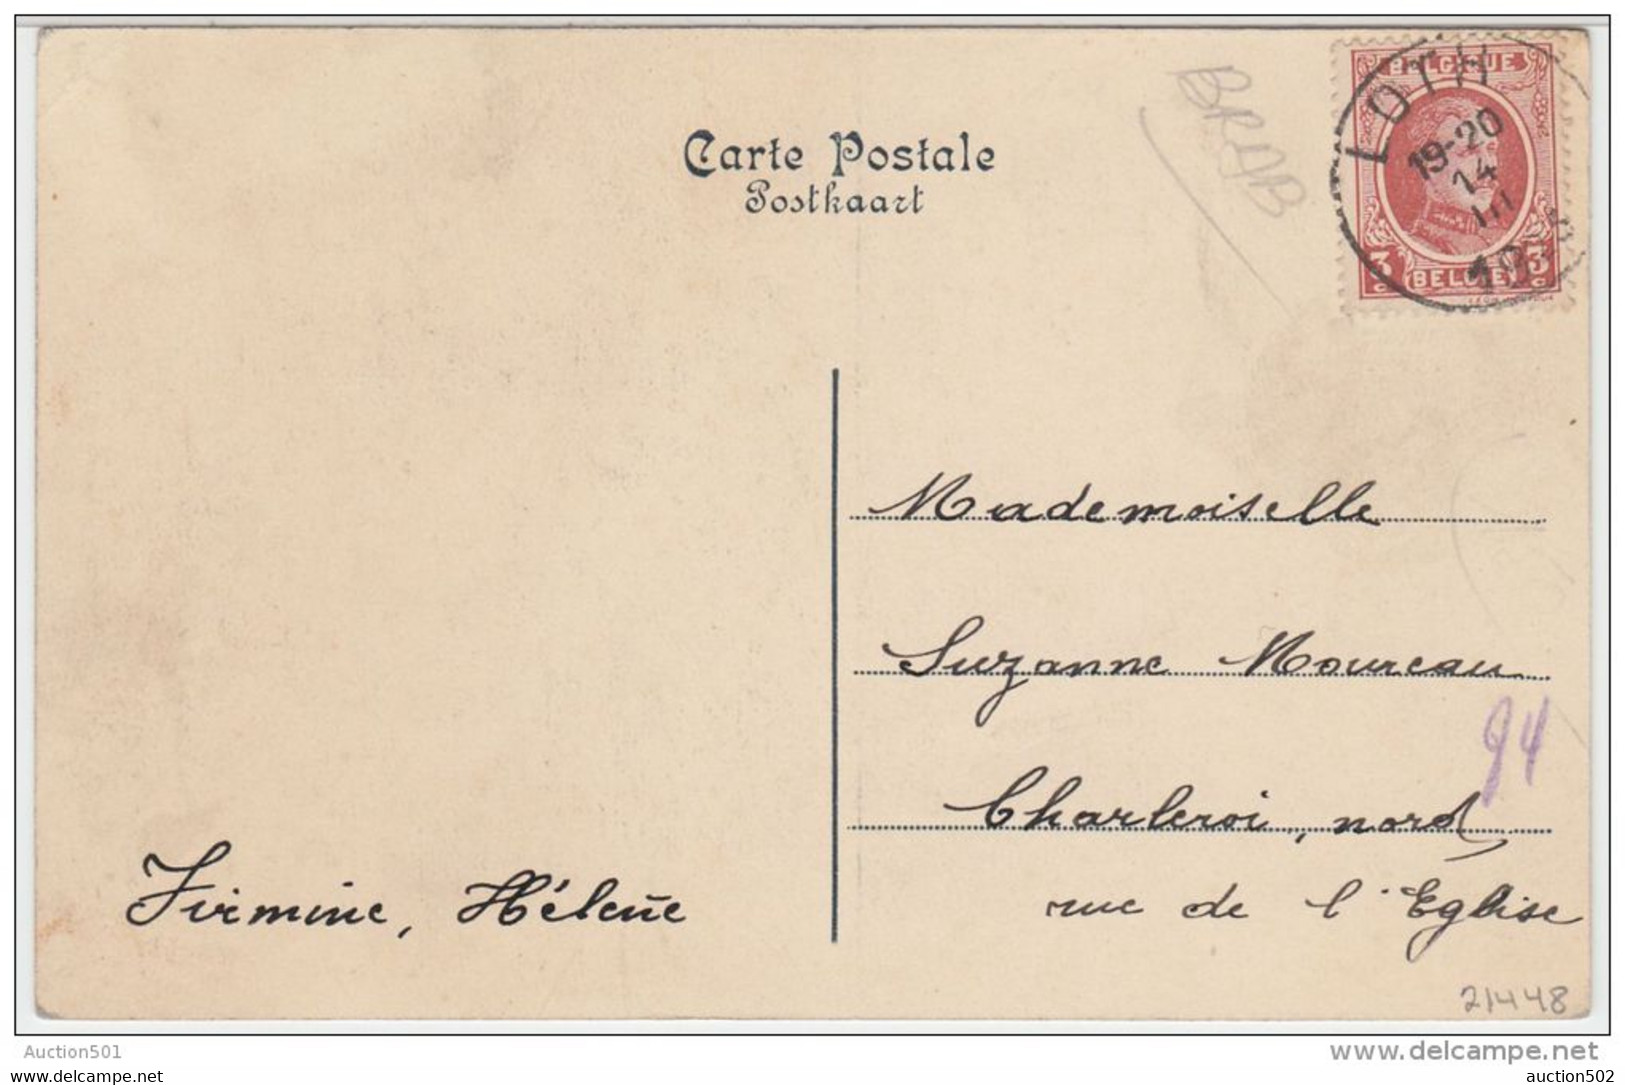 Carte Postale
Postkaart
BRAB
BELGIQUE
LOTH
19-20
14
III
3 BELGIË 3
Mademoiselle
Suzanne Moureau
94
Charleroi, nord
rue de l'Eglise
Firmine, Hélène
21448
Auction501
www.delcampe.net
auction501.delcampe.com
auction502